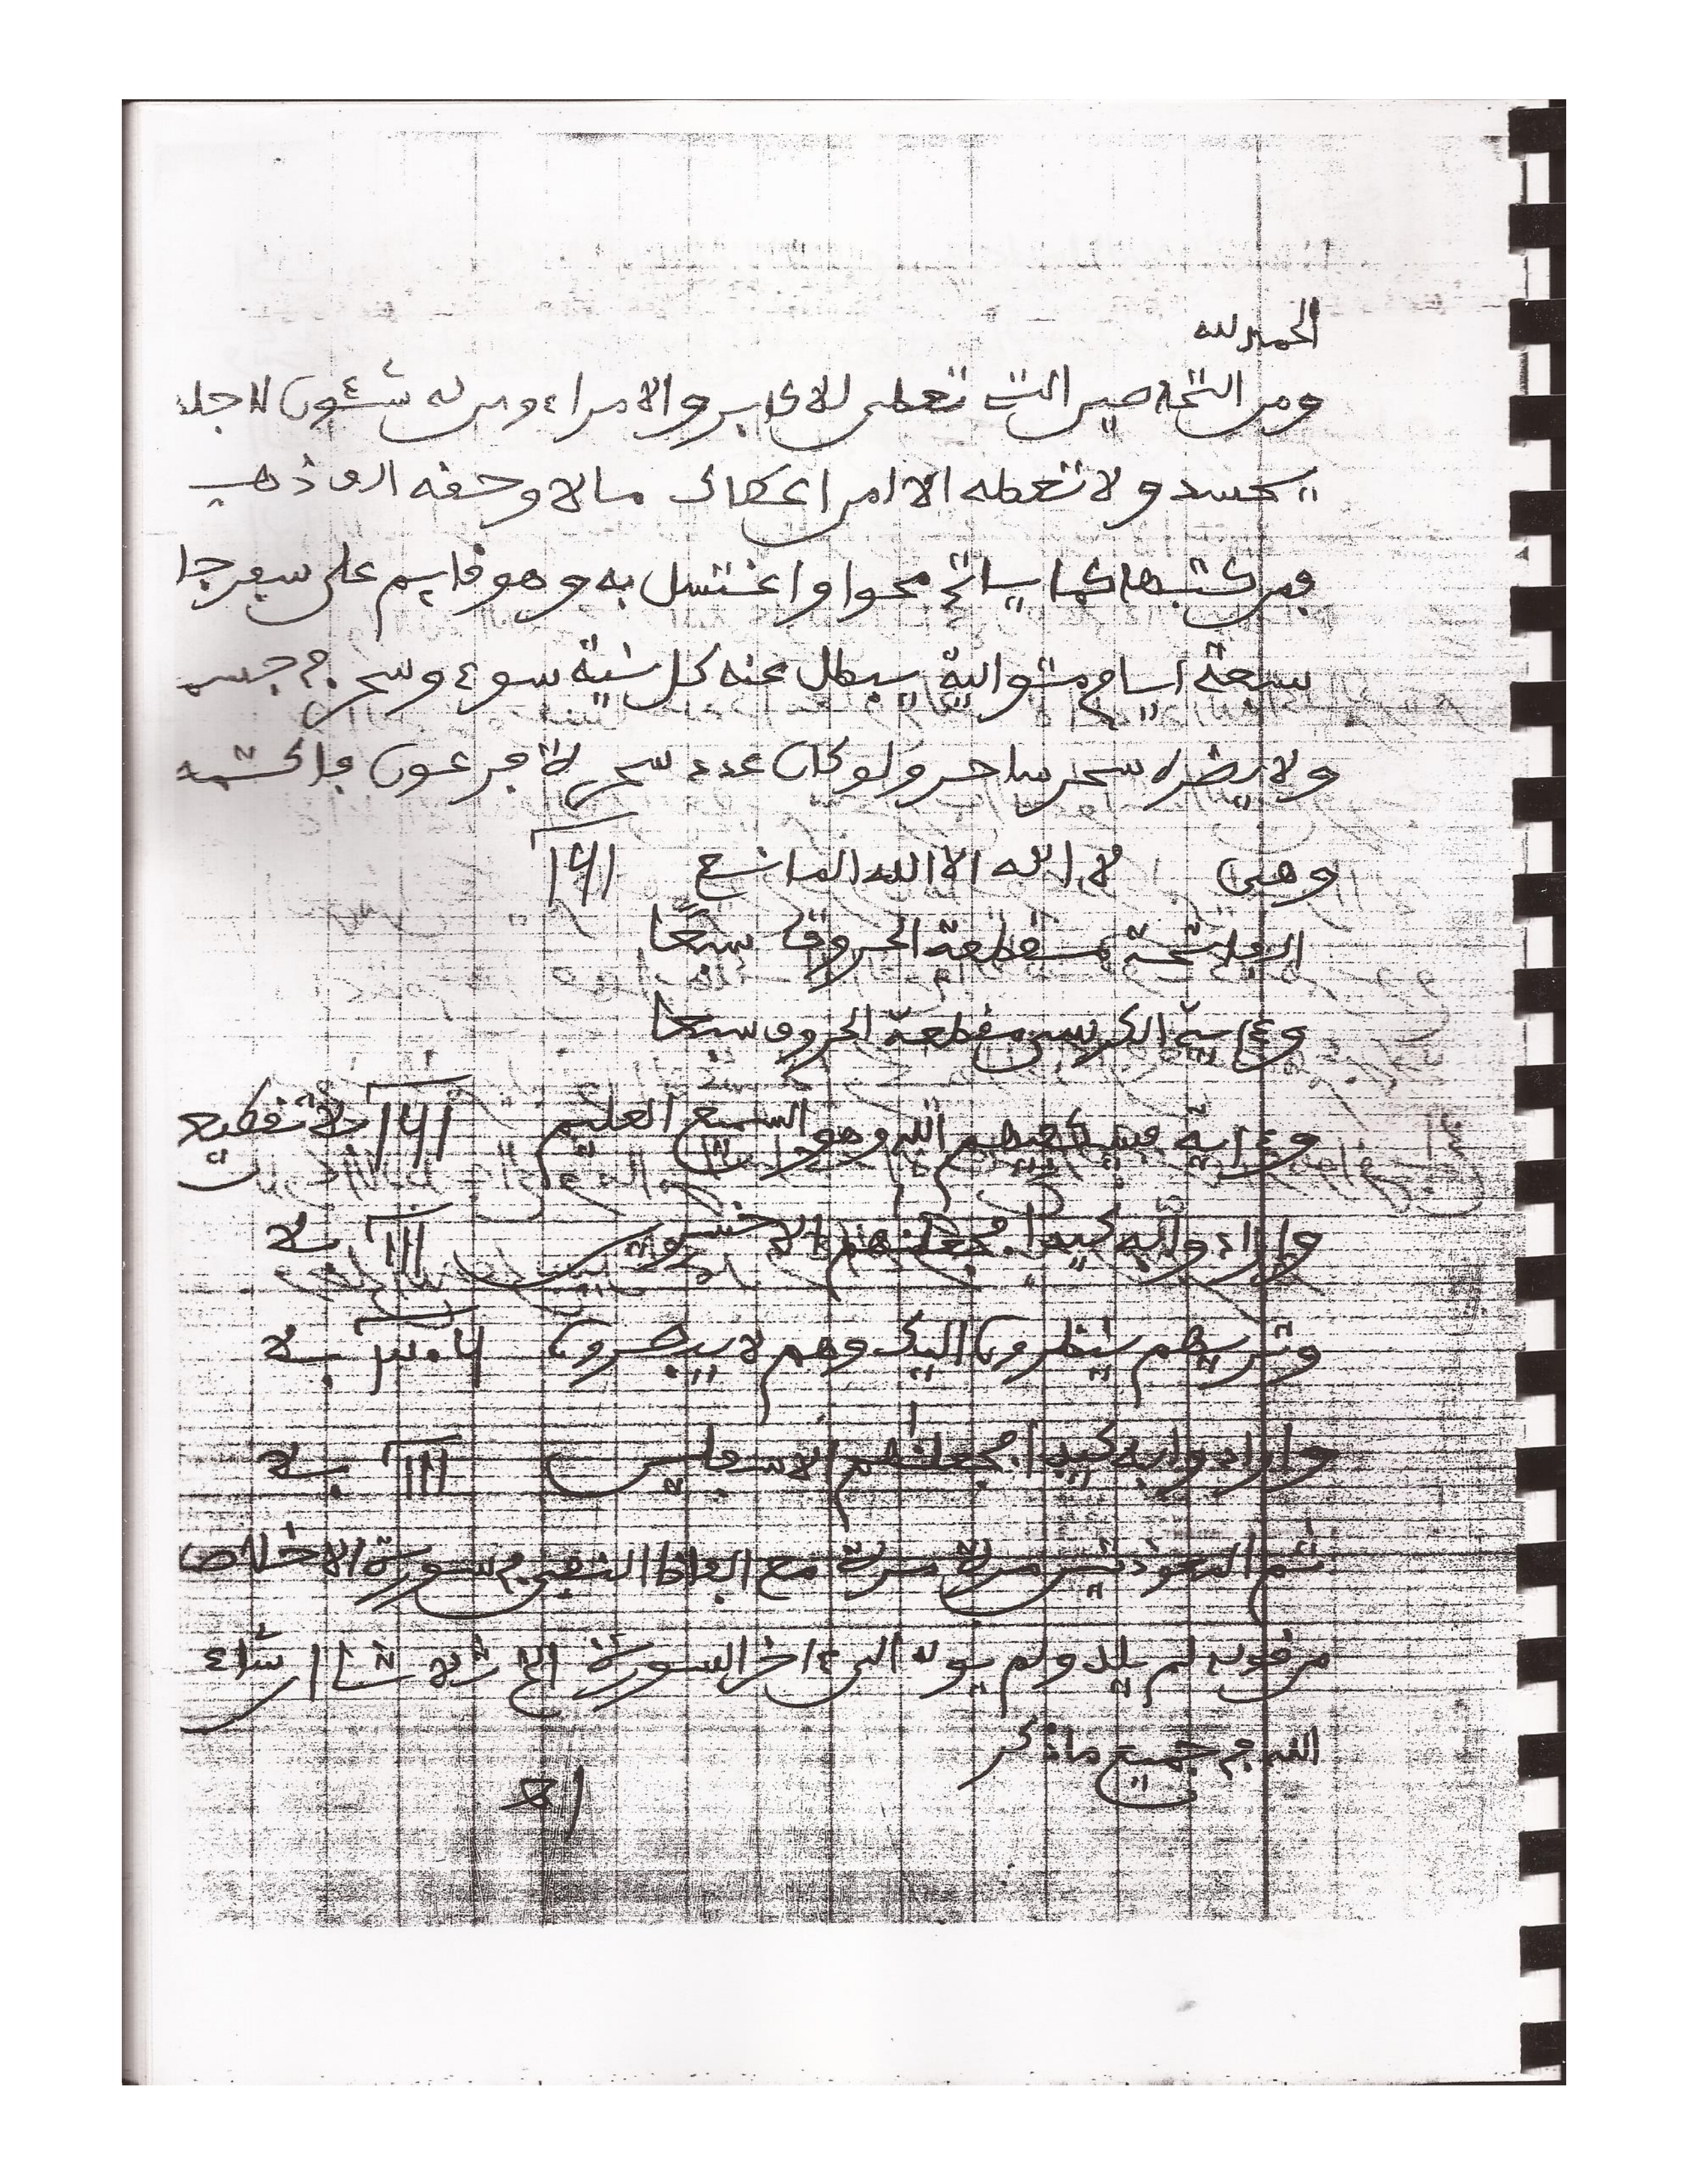 الحمد لله
ومن التحاصير التي تعطى للاكابر والامراء ومن له شئون لاجله
يحسد ولا تعطه الا امن اعطاك مالا وحقه الف ذهب
فمن كتبها كما سياتي محوا واغتسل به وهو قايم على سفرجا
سبعة ايام متوالية يبطل عنه كل نية سوء وسحر في جسمه
ولا يضره سحر ساحر ولو كان عدد سحرة فرعون فاكتمه
وهي لا اله الا الله المانع 161
الفاتحة مقطعة الحروف سبعًا
وءاية الكرسي مقطعة الحروف سبعا
وءاية فسيكفيكهم الله وهو السميع العليم 161 بلا تقطيع
وارادوا به كيدا فجعلنهم الاخسرين 111 بلا
وتريهم ينظرون اليك وهم لا يبصرون بلا
وارادوا به كيدا فجعلنهم الاسفلين 111 بلا
ثم المعوذتين مرة مرة مع الفاظ النفي في سورة الاخلاص
من قوله لم يلد ولم يولد الى ءاخر السورة ان شاء
الله في جميع ما ذكر